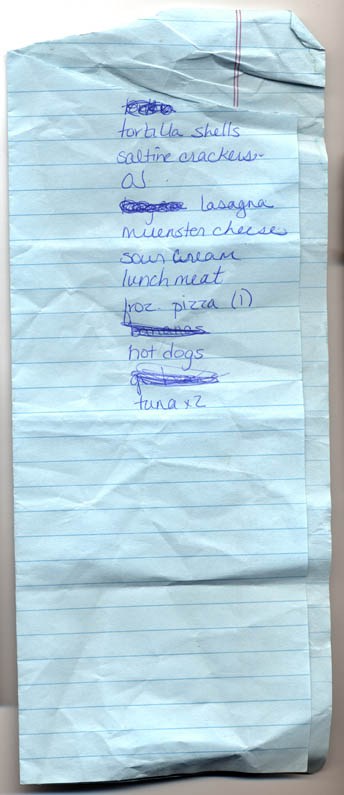 tortilla shells
saltine crackers
OJ
lasagna
muenster cheese
sour cream
lunch meat
froz. pizza (1)
bananas
hot dogs
tuna x2